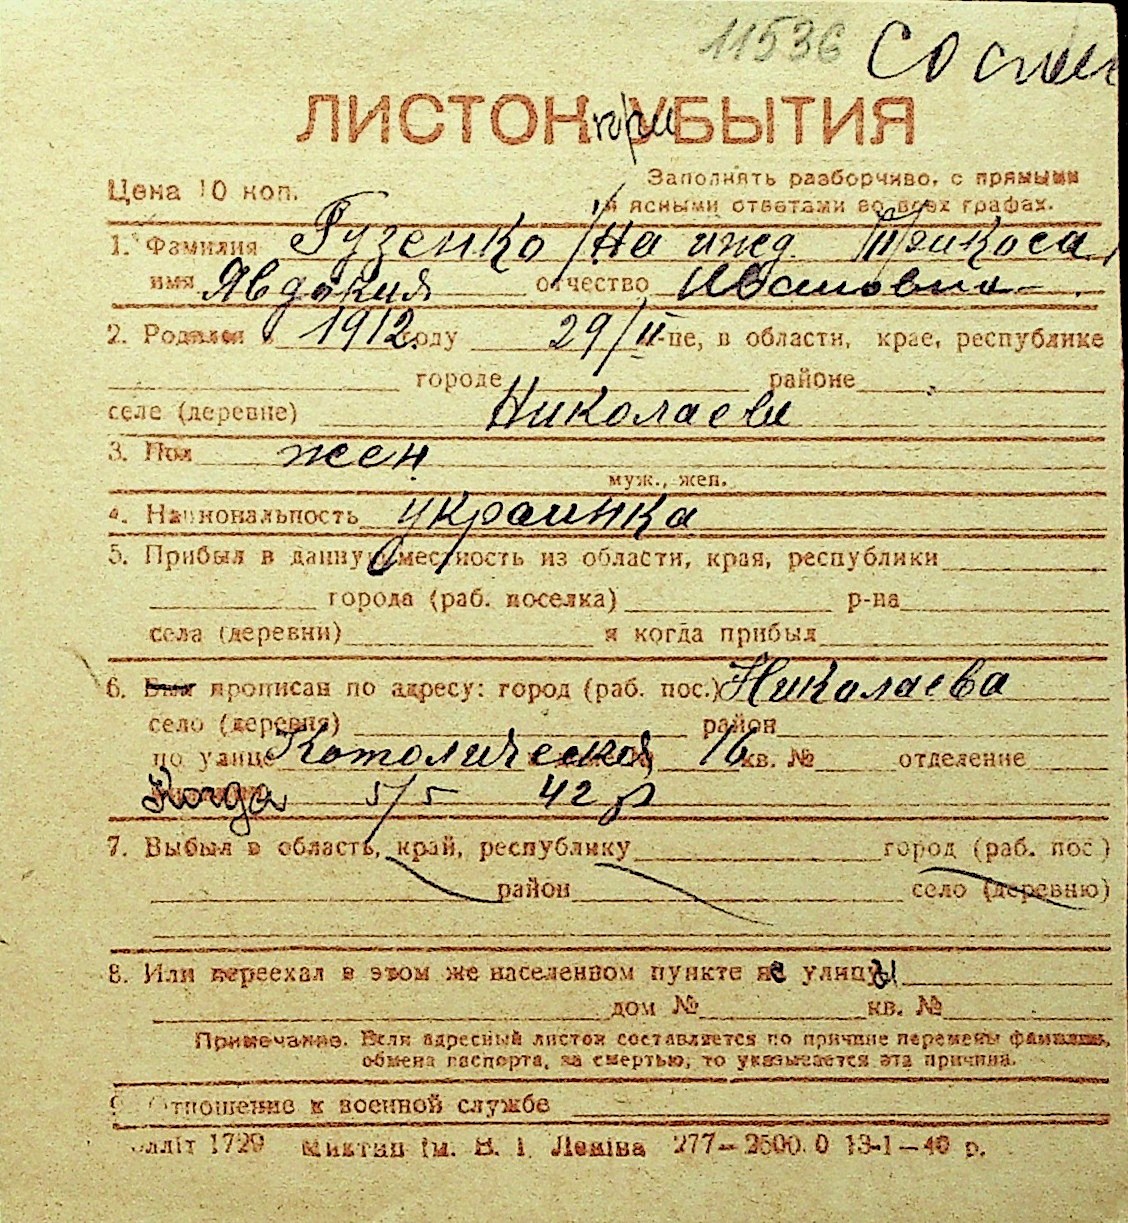 11536 Со слов
ЛИСТОК при УБЫТИЯ
Цена 10 коп.
Заполнять разборчиво, с прямыми
и ясными ответами во всех графах.
1. Фамилия Гузенко /на ижд. Трикоса/
имя Явдокия отчество Ивановна
2. Родился в 1912 году 29/II м-це, в области, крае, республике
городе районе
селе (деревне) Николаеве
3. Пол жен
муж., жен.
4. Национальность украинка
5. Прибыл в данную местность из области, края, республики
города (раб. поселка) р-на
села (деревни) и когда прибыл
6. Был прописан по адресу: город (раб. пос.) Николаева
село (деревня) район
по улице Католической № 16 кв. № отделение
Когда 5/5 42 г
7. Выбыл в область, край, республику город (раб. пос.)
район село (деревню)
8. Или переехал в этом же населенном пункте не улицы
дом № кв. №
Примечание. Если адресный листок составляется по причине перемены фамилии,
обмена паспорта, за смертью, то указывается эта причина.
9. Отношение к военной службе
олліт 1729 Миктип ім. В. І. Леніна 277—2500.0 13-1—40 р.